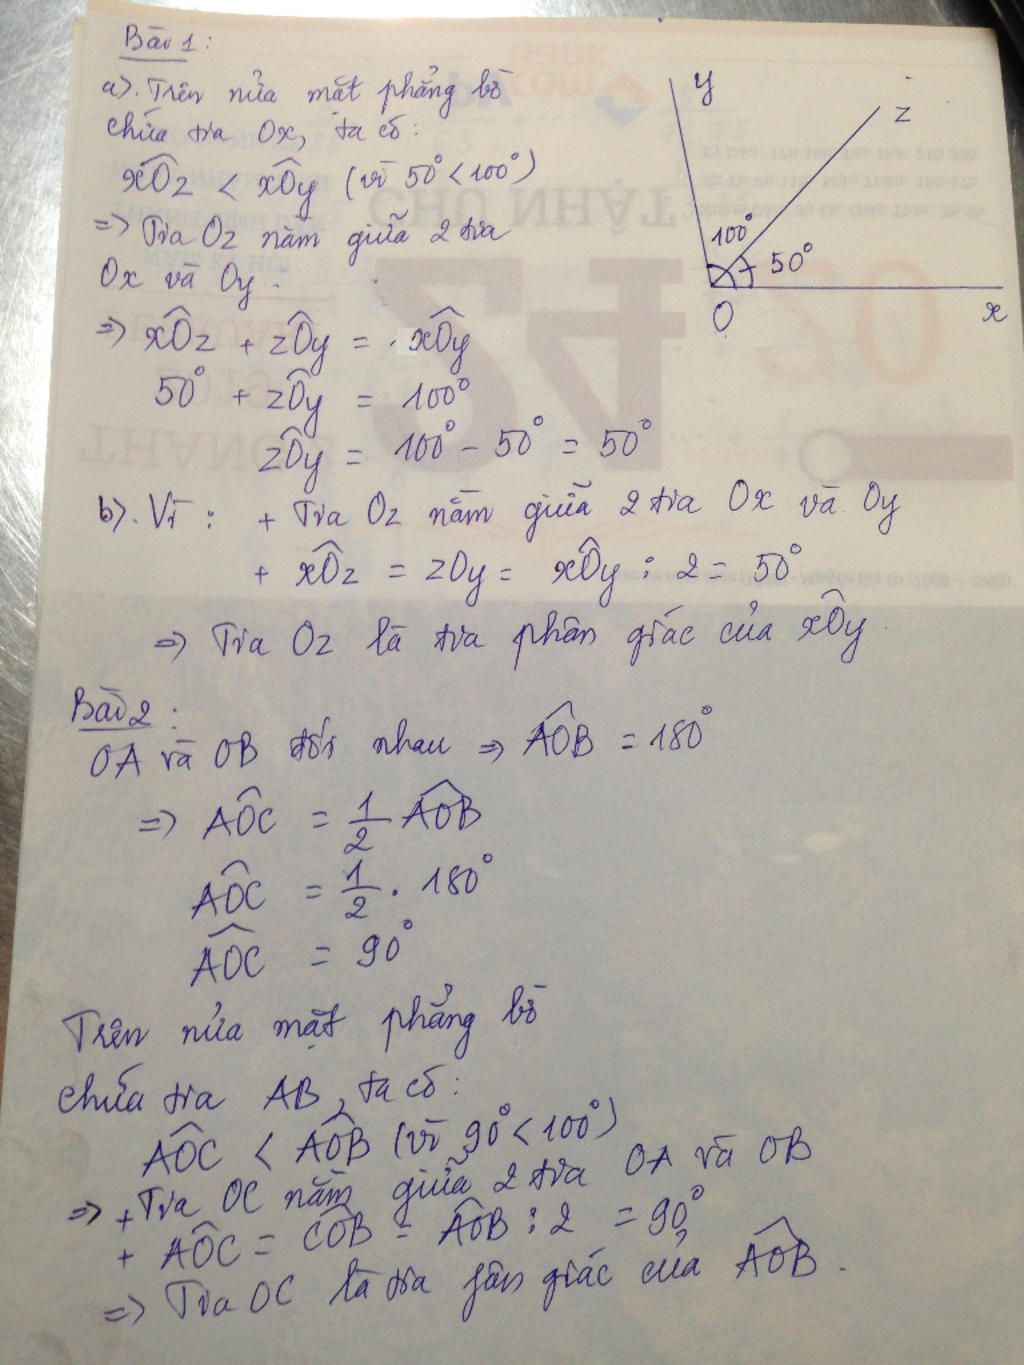 Bài 1:
a). Trên nửa mặt phẳng bờ
chứa tia Ox, ta có:
xÔz < xÔy (vì 50° < 100°)
=> Tia Oz nằm giữa 2 tia
Ox và Oy.
=> xÔz + zÔy = xÔy
50° + zÔy = 100°
zÔy = 100° - 50° = 50°
y
z
100°
50°
O
x
b). Vì: + Tia Oz nằm giữa 2 tia Ox và Oy
+ xÔz = zOy = xÔy : 2 = 50°
=> Tia Oz là tia phân giác của xÔy
Bài 2:
OA và OB đối nhau => AÔB = 180°
=> AÔC = 1/2 AÔB
AÔC = 1/2 . 180°
AÔC = 90°
Trên nửa mặt phẳng bờ
chứa tia AB, ta có:
AÔC < AÔB (vì 90° < 100°)
=> + Tia OC nằm giữa 2 tia OA và OB
+ AÔC = CÔB = AÔB : 2 = 90°
=> Tia OC là tia fân giác của AÔB.
CHỦ NHẬT
24
20